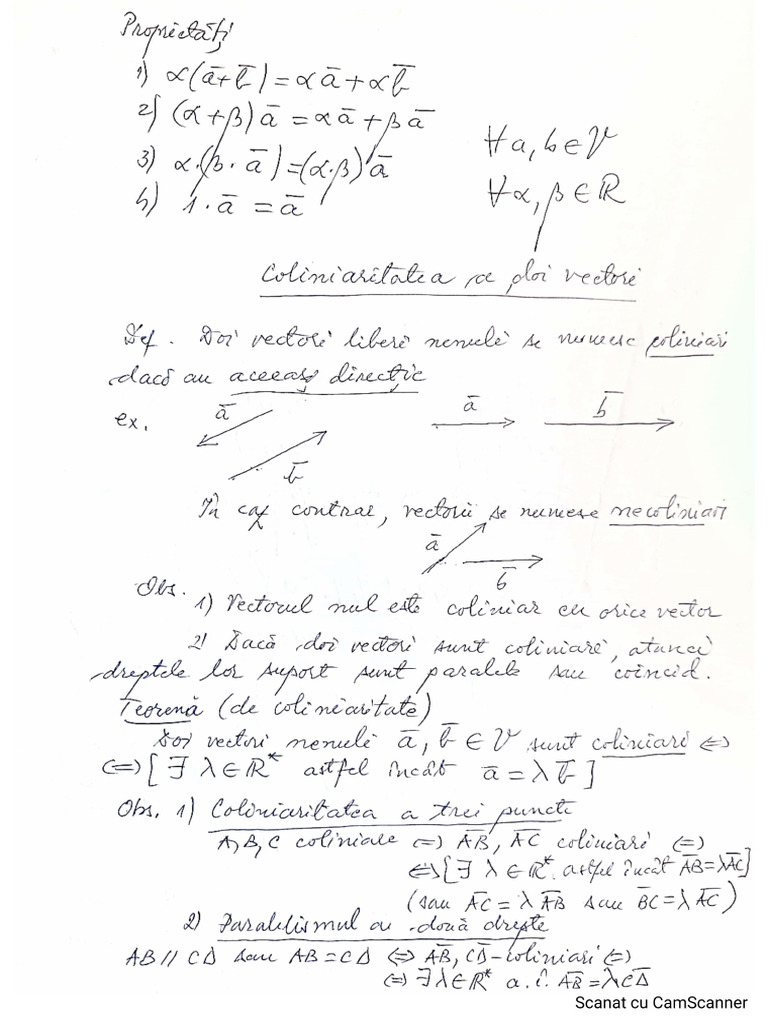 Proprietăți
1) α(a̅+b̅)=αa̅+αb̅
2) (α+β)a̅=αa̅+βa̅
3) α·(β·a̅)=(α·β)a̅
4) 1·a̅=a̅
∀a,b∈V
∀α,β∈ℝ
Coliniaritatea a doi vectori
Def. Doi vectori liberi nenuli se numesc coliniari
dacă au aceeași direcție
ex. a̅ b̅ a̅ b̅
În caz contrar, vectorii se numesc necoliniari
a̅ b̅
Obs.
1) Vectorul nul este coliniar cu orice vector
2) Dacă doi vectori sunt coliniari, atunci
dreptele lor suport sunt paralele sau coincid.
Teoremă (de coliniaritate)
Doi vectori nenuli a̅, b̅ ∈ V sunt coliniari ⇔
⇔ [∃ λ∈ℝ* astfel încât a̅=λb̅]
Obs. 1) Coliniaritatea a trei puncte
A,B,C coliniare ⇔ A̅B̅, A̅C̅ coliniari ⇔
⇔[∃ λ∈ℝ* astfel încât A̅B̅=λA̅C̅]
(sau A̅C̅=λA̅B̅ sau B̅C̅=λA̅C̅)
2) Paralelismul a două drepte
AB // CD sau AB=CD ⇔ A̅B̅, C̅D̅ - coliniari ⇔
⇔ ∃λ∈ℝ* a.î. A̅B̅=λC̅D̅
Scanat cu CamScanner